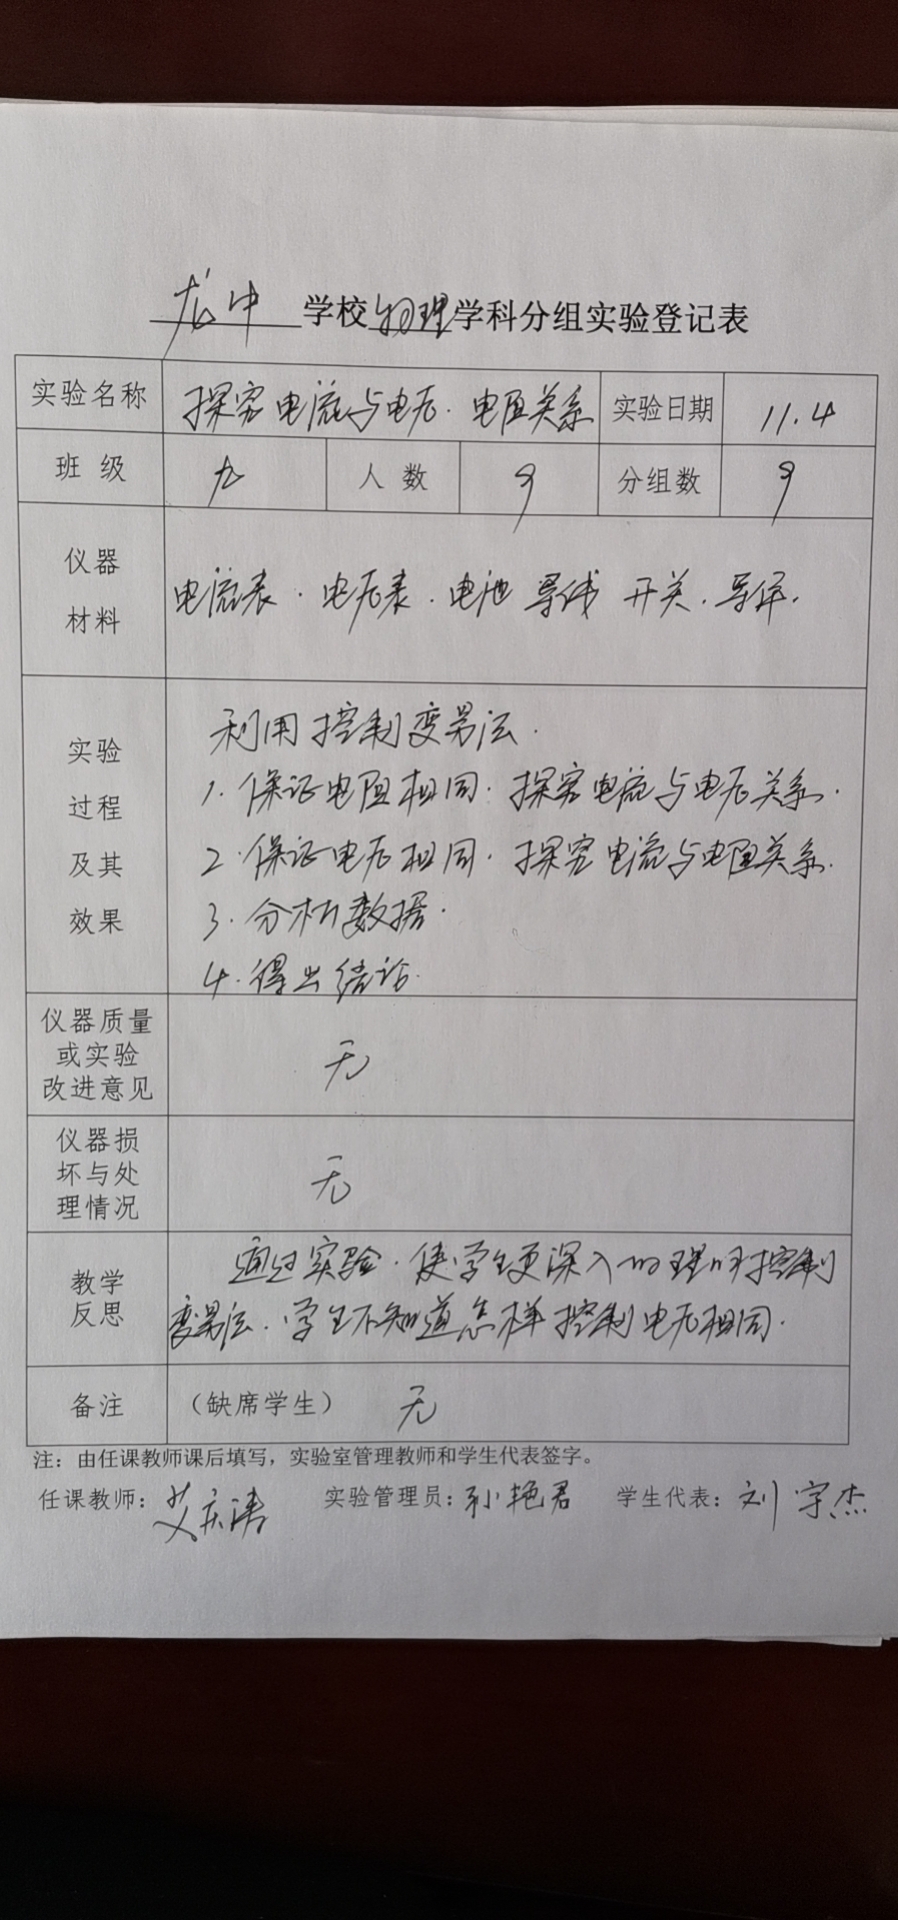 龙中 学校 物理 学科分组实验登记表
实验名称 探究电流与电压.电阻关系 实验日期 11.4
班 级 九 人 数 9 分组数 9
仪器
材料
电流表.电压表.电池 导线 开关.导体.
实验
过程
及其
效果
利用控制变量法.
1.保证电阻相同.探究电流与电压关系.
2.保证电压相同.探究电流与电阻关系.
3.分析数据.
4.得出结论.
仪器质量
或实验
改进意见
无
仪器损
坏与处
理情况
无
教学
反思
通过实验.使学生更深入的理解控制
变量法.学生不知道怎样控制电压相同.
备注 (缺席学生) 无
注：由任课教师课后填写，实验室管理教师和学生代表签字。
任课教师：艾庆涛 实验管理员：孙艳君 学生代表：刘宇杰